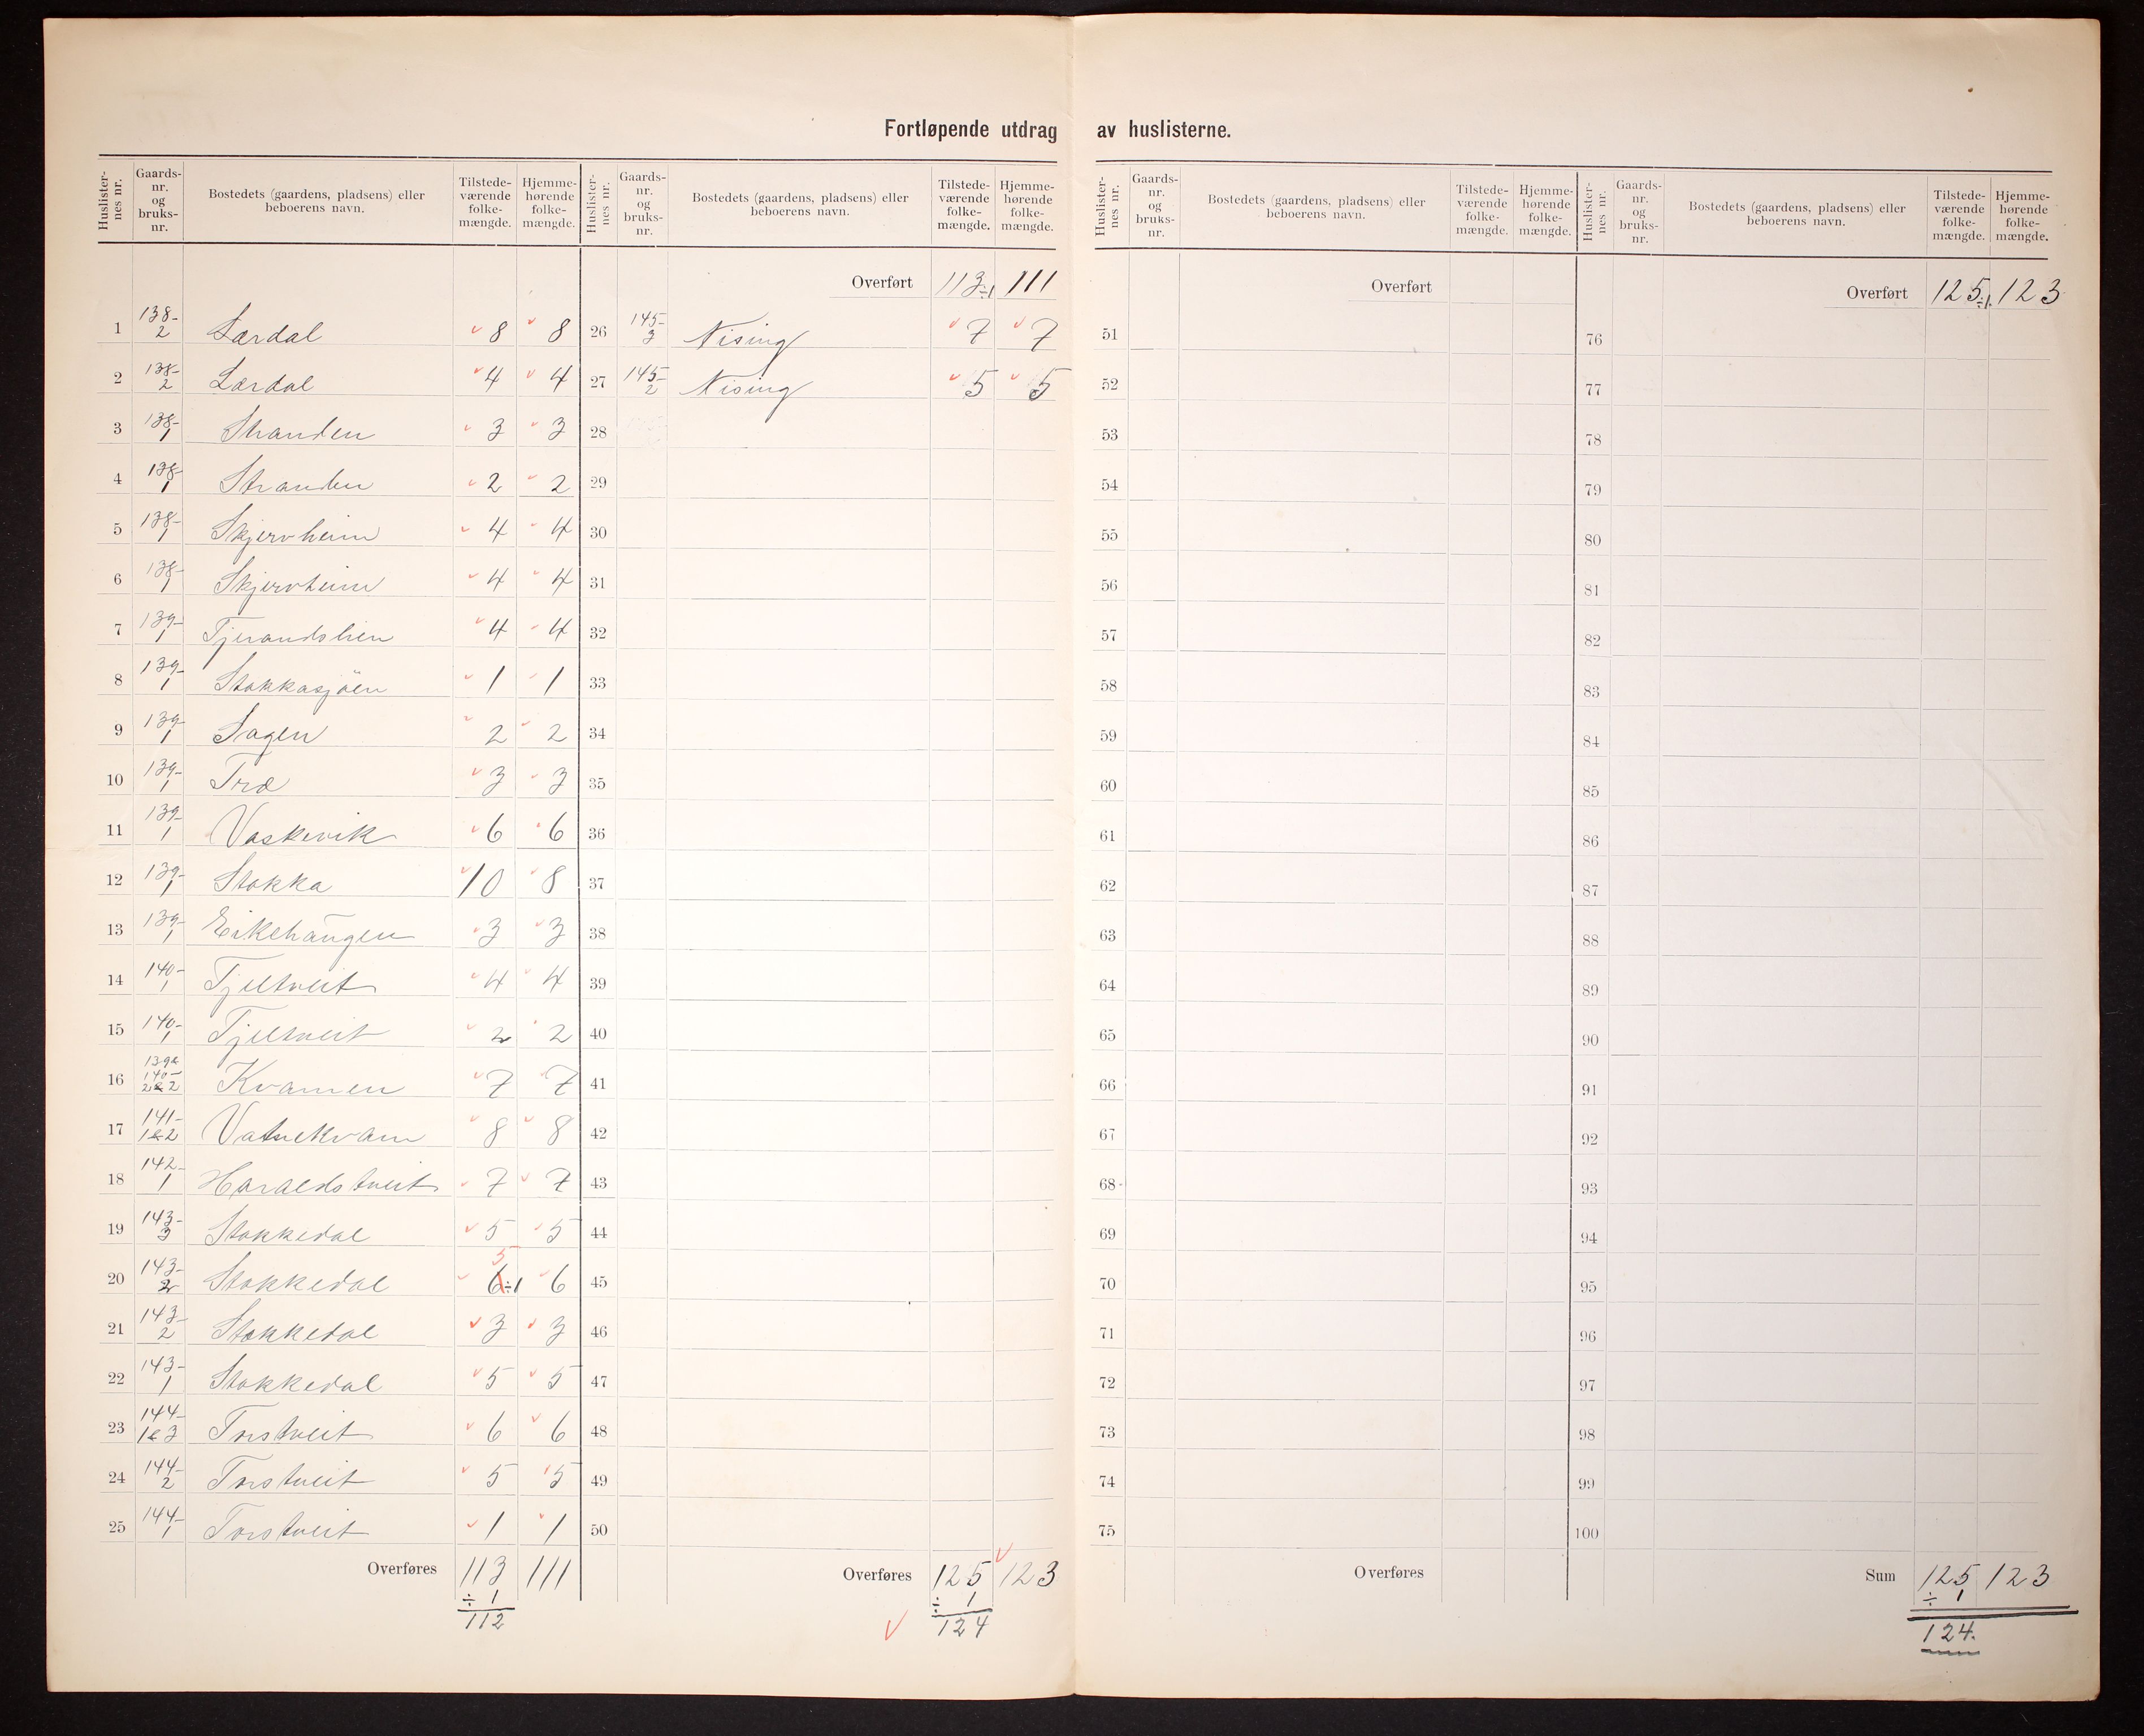 Fortløpende utdrag av huslisterne.
Huslister-nes nr. | Gaards-nr. og bruks-nr. | Bostedets (gaardens, pladsens) eller beboerens navn. | Tilstede-værende folke-mængde. | Hjemme-hørende folke-mængde.
1 138-2 Lærdal 8 8
2 138-2 Lærdal 4 4
3 138-1 Stranden 3 3
4 138-1 Stranden 2 2
5 138-1 Skjervheim 4 4
6 138-1 Skjervheim 4 4
7 139-1 Tjerandslien 4 4
8 139-1 Stokkasjöen 1 1
9 139-1 Sagen 2 2
10 139-1 Træ 3 3
11 139-1 Vaskevik 6 6
12 139-1 Stokka 10 8
13 139-1 Eikehaugen 3 3
14 140-1 Tjeltveit 4 4
15 140-1 Tjeltveit 2 2
16 139 & 140- 2 & 2 Kvamen 7 7
17 141- 1 & 2 Vatnekvam 8 8
18 142-1 Haraldstveit 7 7
19 143-3 Stokkedal 5 5
5
20 143-2 Stokkedal 6÷1 6
21 143-2 Stokkedal 3 3
22 143-1 Stokkedal 5 5
23 144- 1 & 3 Torstveit 6 6
24 144-2 Torstveit 5 5
25 144-1 Torstveit 1 1
Overføres 113 111
÷ 1
112
Huslister-nes nr. | Gaards-nr. og bruks-nr. | Bostedets (gaardens, pladsens) eller beboerens navn. | Tilstede-værende folke-mængde. | Hjemme-hørende folke-mængde.
Overført 113÷1 111
26 145-3 Nising 7 7
27 145-2 Nising 5 5
28
29
30
31
32
33
34
35
36
37
38
39
40
41
42
43
44
45
46
47
48
49
50
Overføres 125 123
÷ 1
124
Huslister-nes nr. | Gaards-nr. og bruks-nr. | Bostedets (gaardens, pladsens) eller beboerens navn. | Tilstede-værende folke-mængde. | Hjemme-hørende folke-mængde.
Overført
51
52
53
54
55
56
57
58
59
60
61
62
63
64
65
66
67
68
69
70
71
72
73
74
75
Overføres
Huslister-nes nr. | Gaards-nr. og bruks-nr. | Bostedets (gaardens, pladsens) eller beboerens navn. | Tilstede-værende folke-mængde. | Hjemme-hørende folke-mængde.
Overført 125÷1 123
76
77
78
79
80
81
82
83
84
85
86
87
88
89
90
91
92
93
94
95
96
97
98
99
100
Sum 125 123
÷ 1
124.